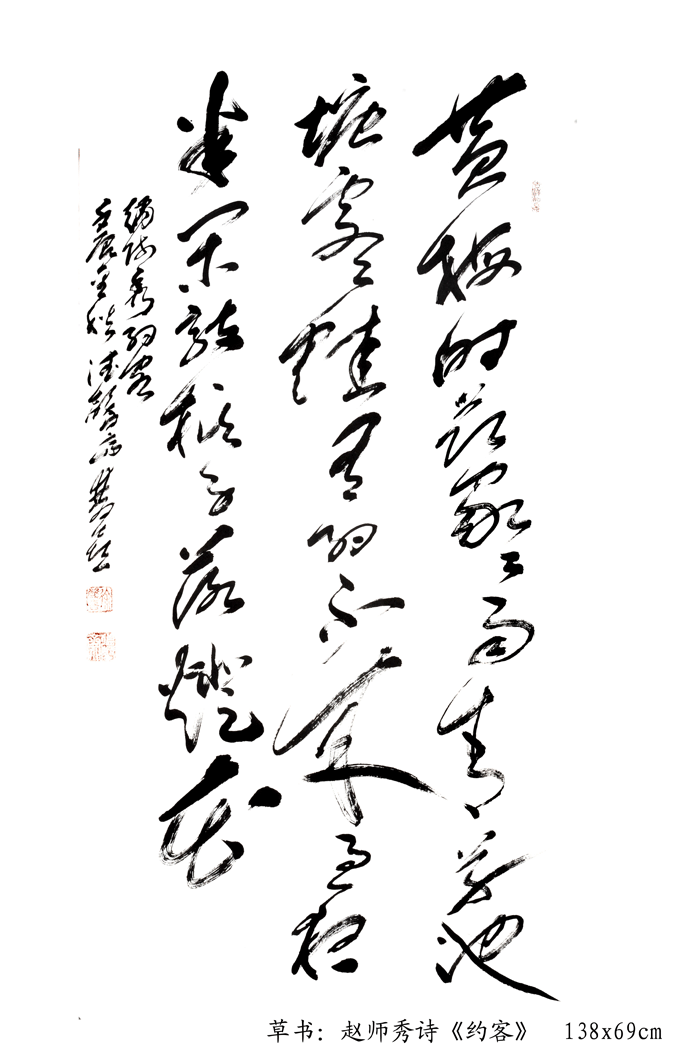 黄梅时节家々雨青草池
塘处々蛙有约不来过夜
半闲敲棋子落燈花
师秀约客
壬辰金秋
草书：赵师秀诗《约客》 138x69cm